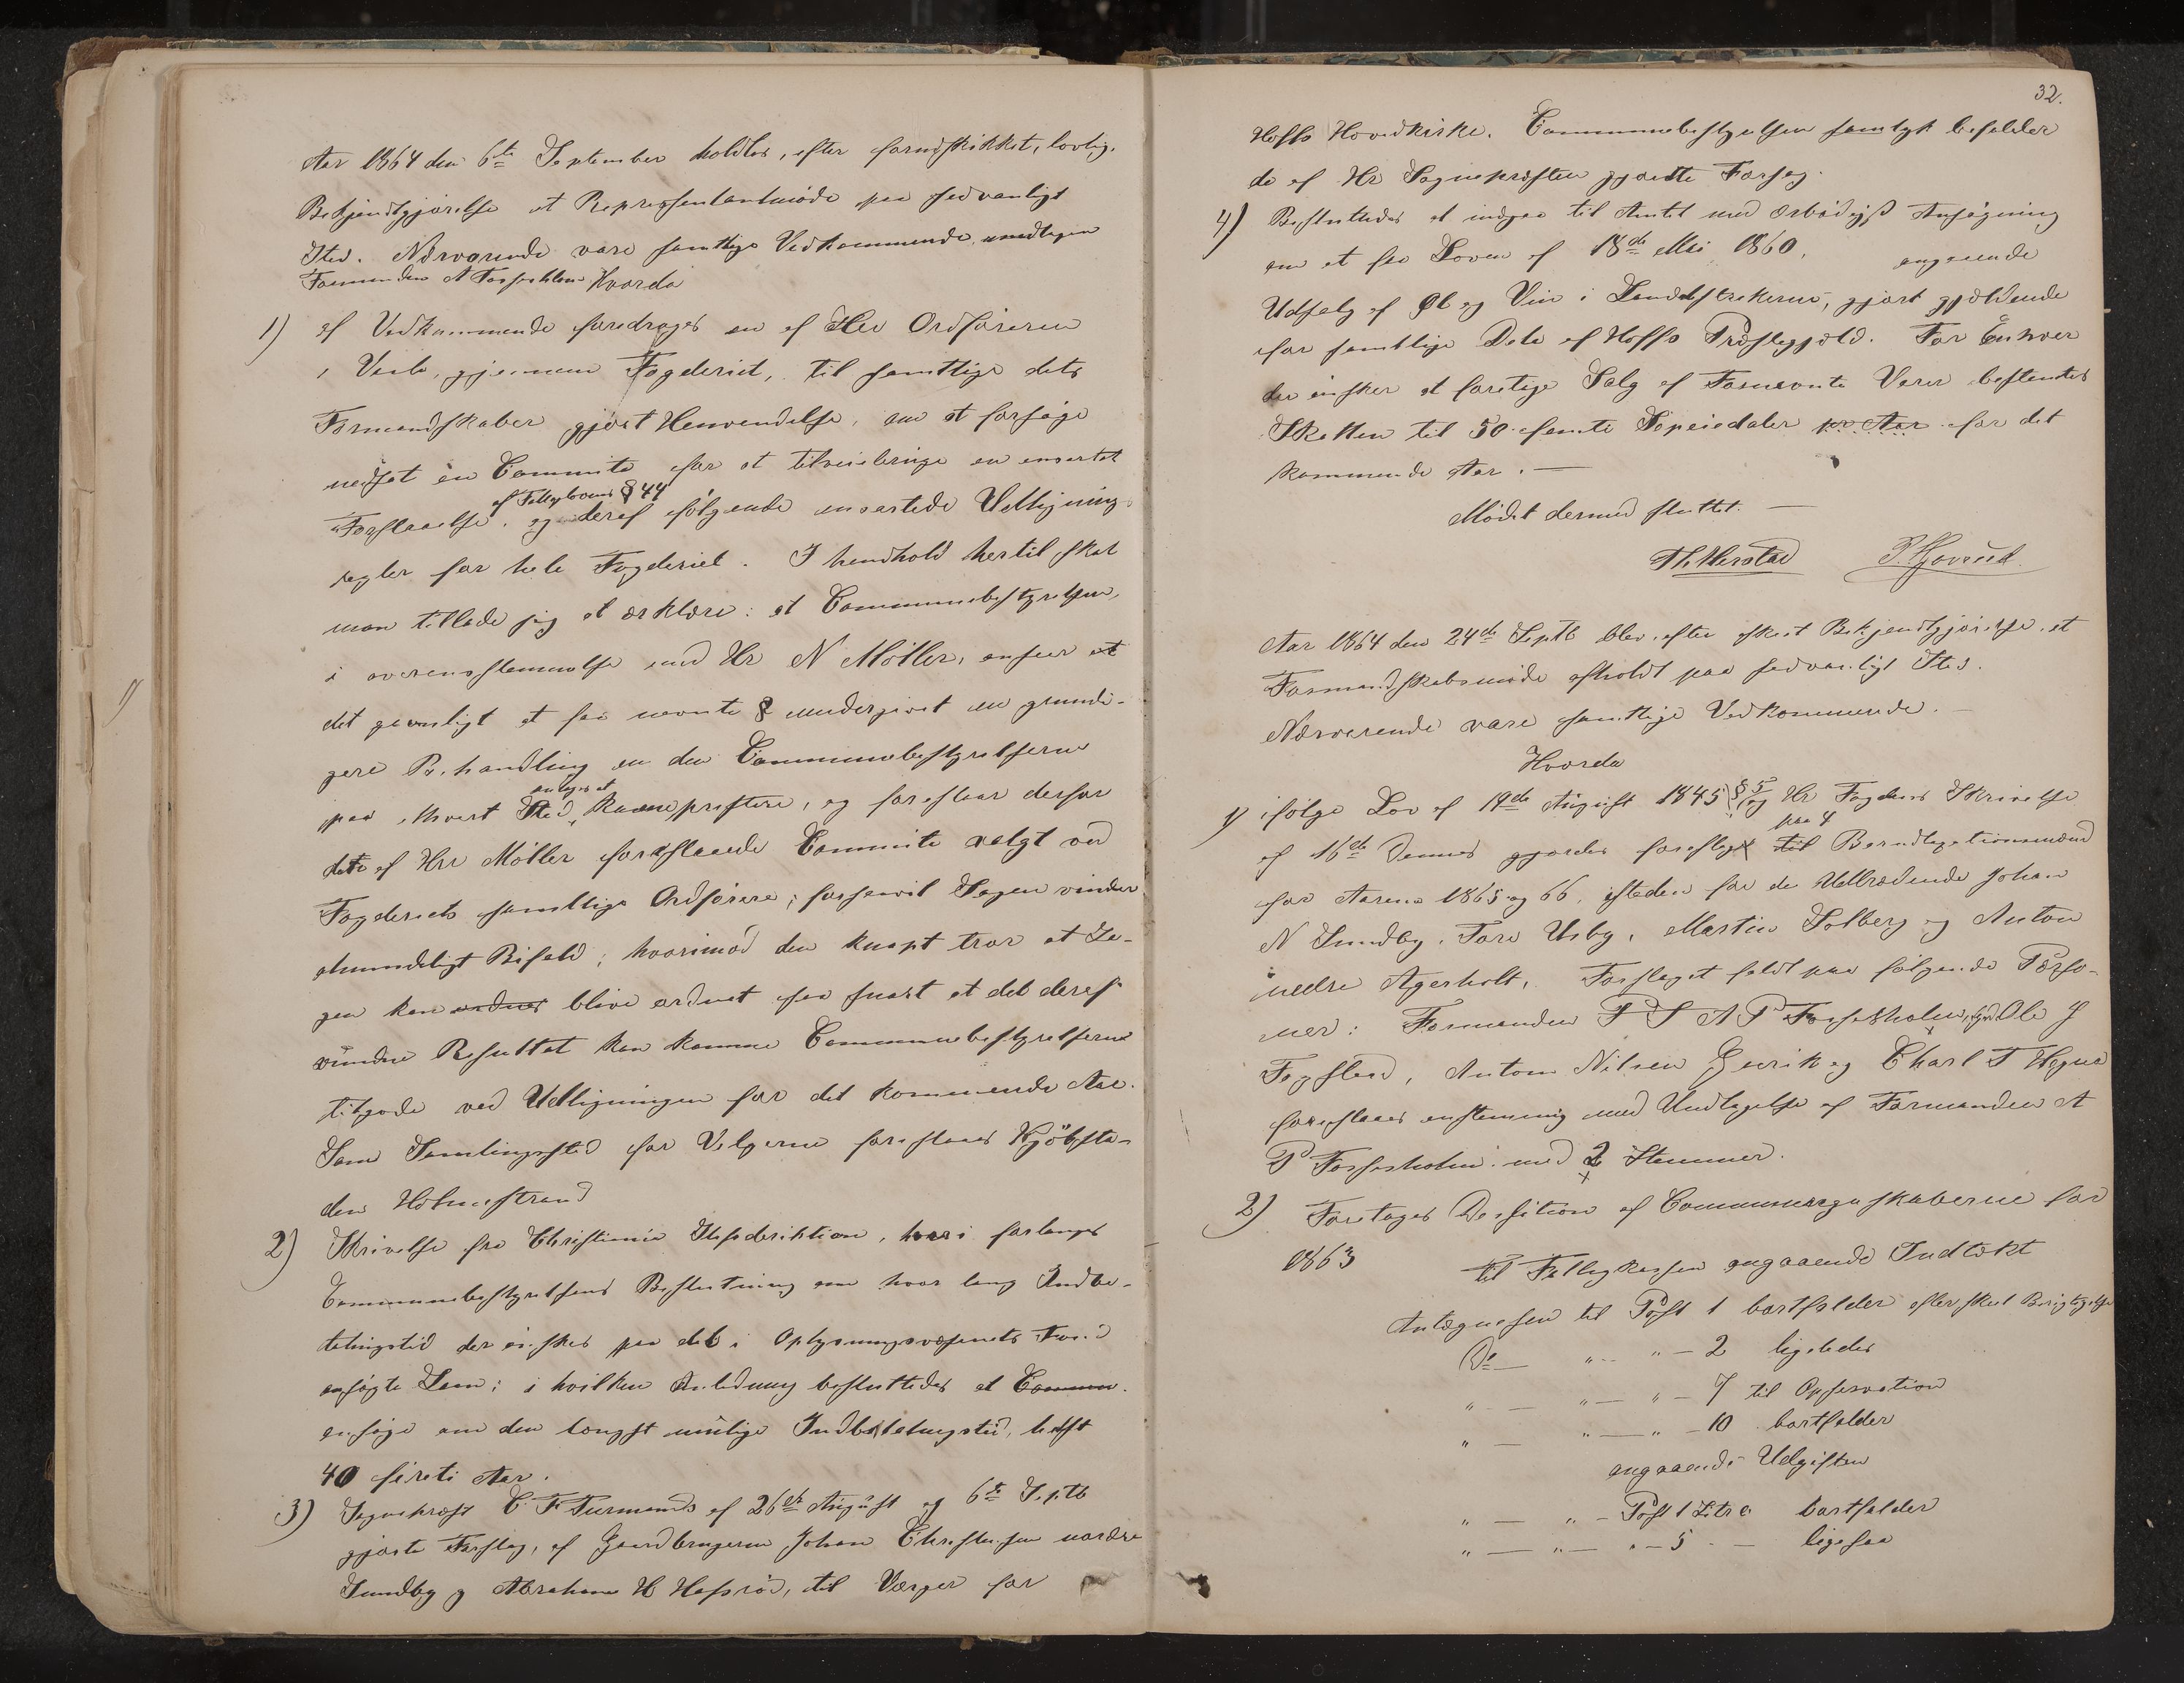 Aar 1864 den 6te September holdtes, efter forudskikket, lovlig.
Bekjendtgjørelse et Repræsentantmøde paa sedvanligt
Sted. Nærværende vare samtlige Vedkommende, undtagen
Formanden A Fossesholm Hvorda
1) af Vedkommende foredroges en af Hr Ordføreren
i gjennem Fogderiet, til samtlige dets
Formandskaber gjort Henvendelse, om at forsøge
nedsat en Committe for at tilveiebringe en ensartet
Forstaaelse af § 44 og deraf følgende ensartede Udligning-
regler for hele Fogderiet. I henhold hertil skal
man tillade sig at erklære: at Communebestyrelsen,
i overensstemmelse med Hr N Møller, anseer at
det gavnligt at faa nevnte § undergivet en grundi-
gere Behandling en den Communebestyrelserne
paa ethvert Sted, antages at kunne præstere, og foreslaar derfor
dete af Hr Møller foreslaaede Committe valgt ved
Fogderiets samtlige Ordførere; forsaavit Sagen vinder
almindeligt Bifald; hvorimod den knapt tror at Sa-
gen kan ordnes blive ordnet saa snart at det deraf
vundne Resultat kan komme Communebestyrelserne
tilgode ved Udligningen for det kommende Aar.
Som Samlingssted for Velgerne foreslaaes Kjøbsta-
den Holmestrand
2) Skrivelse fra Christiania Stifsdiriktion, hvori forlanges
Communebestyrelsens Beslutning om hvor lang Indbe-
talingstid der ønskes paa det i Oplysningsvæsenets Fond
ansøgte Laan; i hvilken Anledning besluttedes at Commun.
ansøge om den længst mulige Indbetalingstid, helst
40 fireti Aar.
3) Sognepræst C. F. af 26de August og 6te Septb
gjorte Forslag, af Gaardbrugerne Johan Christensen nordre
Sundby og Abraham H Hafsrød, til Værger for
32.
Hoffs Hovedkirke. Communebestyrelsen samtykt befalder
de af Hr Sognepræsten gjordte Forsag.
4) Besluttedes at indgaa til Amtet med ærbødigst Ansøgning
om at faa Loven af 18de Mai 1860, angaaende
Udsalg af Øl og Vin i Landdistrikerne, gjort gjældende
for samtlige Dele af Hoffs Præstegjeld. For Enhver
der ønsker at foretage Salg af Varer bestemtes
Skatten til 50 femti Speciedaler pr Aar for det
kommende Aar. —
Mødet dermed sluttet. —
Th Herstad P. Hjovrud
Aar 1864 den 24de Septb blev efter skeet Bekjendtgjørelse et
Formandskabsmøde afholdt paa sedvanligt Sted.
Nærverende vare samtlige Vedkommende. —
Hvorda
1) ifølge Lov af 19de August 1845 § 5 og Hr Fogdens Skrivelse
af 16de Dennes gjordes foreslaget til paa 4
for Aarene 1865 og 66, isteden for de Udtrædende Johan
N Sundby, Tore Usby, Martin Solberg og Anton
nedre Agerholt. Forslaget faldt paa følgende Perso-
ner: Formanden A P Fossesholm, Ole J
Fogstad, Anton Nilsen Gevrik og Charl T Hegna
foreslaaes enstemmig med Undtagelse af Formanden A
P Fossesholm. med 2 Stemmer.
2) Foretages Desition af Communeregnskaberne for
1863 til Fattigkassen angaaende Indtækt
Antegnelsen til Post 1 bortfalder efter skeet Berigtigelse
Do — " — " — 2 ligeledes
" — " — " — 7 til Opservation
" — " — " — 10 bortfalder
angaaende Udgiften
" — " — Post 1 Litr a bortfalder
" — " — " — 5 — ligesaa
1)